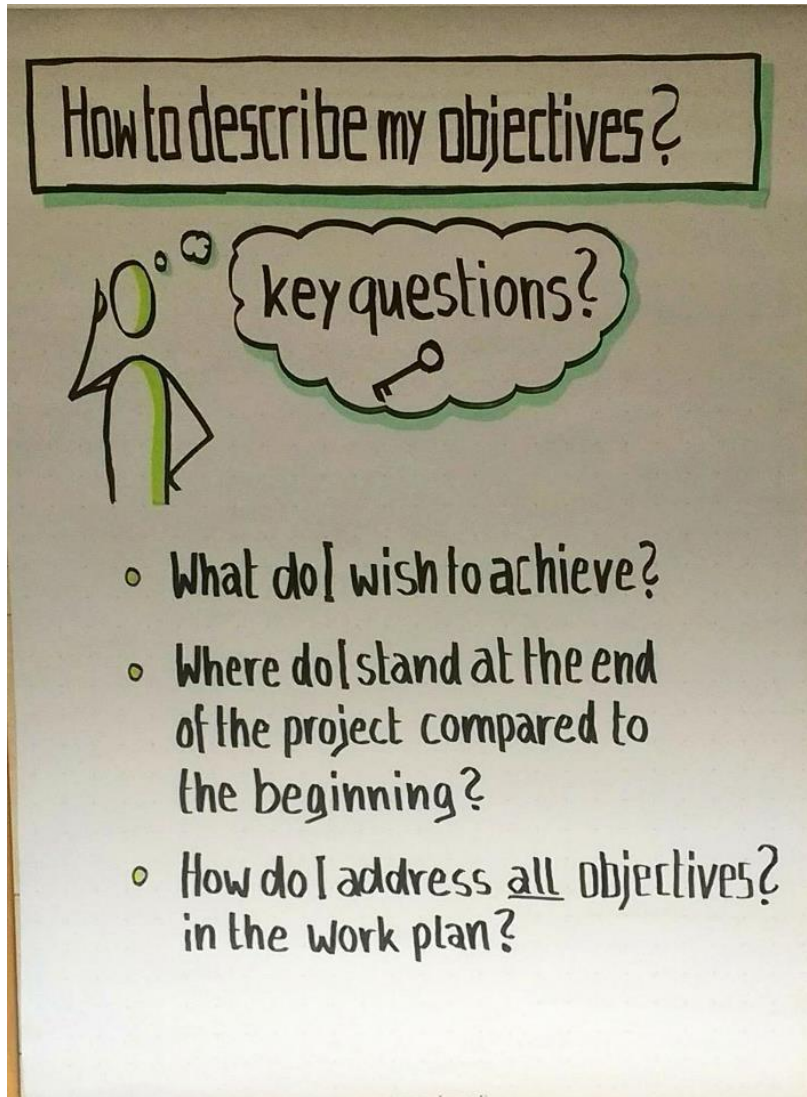 How to describe my objectives?
key questions?
What do I wish to achieve?
Where do I stand at the end
of the project compared to
the beginning?
How do I address all objectives?
in the work plan?